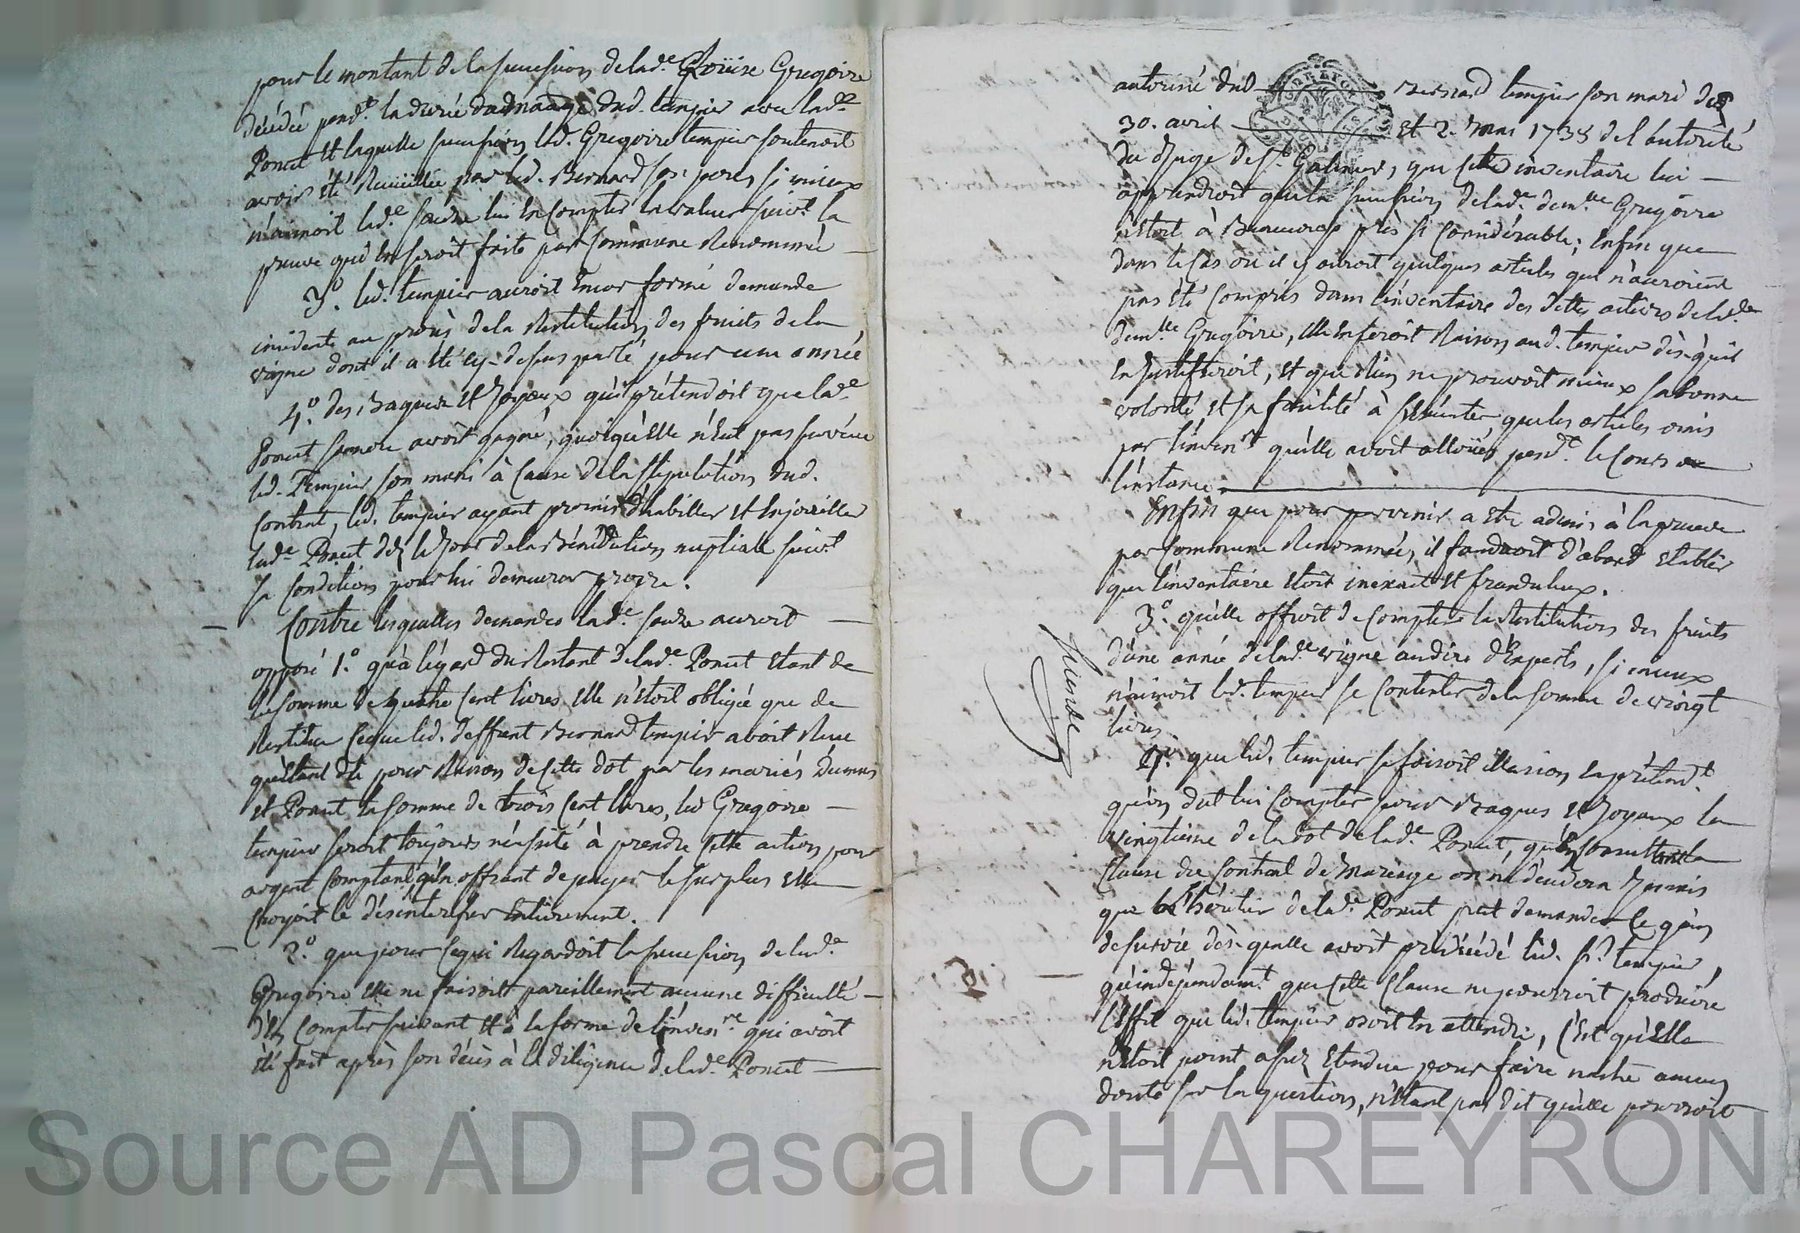 pour le montant de la succession de lad.e Louise Gregoire
décédée pend.t la durée du mariage dud. tempier avec lad.e
Poncet et laquelle succession led. Gregoire tempier soutenoit
avoir été recueillie par led. Bernard son pere, si mieux
n'aimoit lad.e faudre lui en compter la valeur suiv.t la
preuve qui en seroit faite par commune renommée
3.° led. tempier auroit encor formé demande
incidente au procès de la restitution des fruits de la
vigne dont il a été cy-dessus parlé pour une année
4.° des Bagues et joyaux qu'il prétendoit que lad.e
Poncet avoit gagné, quoiqu'elle n'eut pas survécu
led. Tempier son mari à cause de la stipulation dud.
contrat, led. tempier ayant promis d'habiller et enjoailler
lad.e Poncet dez le jour de la Bénédiction nuptiale suiv.t
sa condition pour lui demeurer propre.
Contre lesquelles demandes lad.e auroit
opposé 1.° qu'à l'égard du restant de lad.e Poncet étant de
la somme de quatre cent livres elle n'étoit obligée que de
restituer ce que led. deffunt Bernard tempier avoit reçu
qu'étant dit pour raison de cette dot par les mariés Dumas
et Poncet la somme de trois cent livres, led Gregoire
tempier seroit toujours nécessité à prendre cette action pour
argent comptant qu'en offrant de payer le surplus elle
croyoit le désinteresser entierement.
2.° que pour ce qui regardoit la succession de lad.e
Gregoire elle ne faisoit pareillement aucune difficulté
d'en compter suivant et à la forme de l'inven.re qui avoit
été fait après son décès à la diligence de lad.e Poncet
autorisée dud Bernard tempier son mari des
30. avril et 2. mai 1738 de l'autorité
du Juge de St Galmier, que cette inventaire lui
apprendroit que la succession de lad.e dem.lle Gregoire
n'étoit à Beaucoup près si considérable; enfin que
dans le cas où il y auroit quelques articles qui n'auroient
pas été compris dans l'inventaire des dettes actives de lad.e
dem.lle Gregoire, elle en feroit raison aud. tempier dès qu'il
en justifieroit, et que rien ne prouvoit mieux sa bonne
volonté et sa facilité à s'exécuter, que les articles omis
par l'inven.re qu'elle avoit alloués pend.t le cours de
l'instance.
Enfin que pour parvenir a être admis à la preuve
par commune renommée, il faudroit d'abord etablir
que l'inventaire étoit inexact et frauduleux.
3.° qu'elle offroit de compter la restitution des fruits
d'une année de lad.e vigne au dire d'Experts, si mieux
n'aimoit led. tempier se contenter de la somme de vingt
livres
4.° que led. tempier se faisoit illusion en prétend.t
qu'on dut lui compter pour Bagues et Joyaux la
vingtieme de la dot de lad.e Poncet, qu'en consultant la
clause du contrat de mariage on ne décidera jamais
que l'héritier de lad.e Poncet peut demander le gain
de survie dès-quelle avoit prédécédé led. S.r tempier,
qu'indépendam.t que cette clause ne pourroit produire
l'effet que led. tempier osoit en attendre, c'est qu'elle
n'étoit point assez étendue pour faire naitre aucun
doute sur la question, n'étant pas dit qu'elle pourroit
Source AD Pascal CHAREYRON